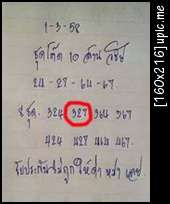 1-3-58
ชุดโต๊ด 10 ล้าน วิชัย
24-27-64-67
ชุด. 324 327 364 367
424 427 464 467
รับประกันไม่ถูกให้ด่า
[160x216] upic.me